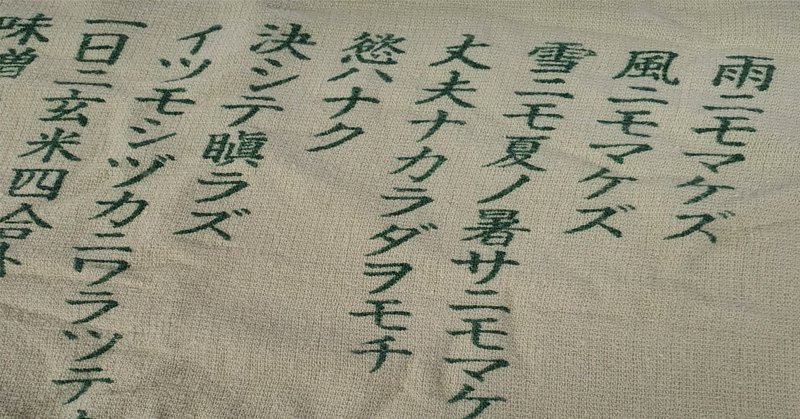 雨ニモマケズ
風ニモマケズ
雪ニモ夏ノ暑サニモマケ
丈夫ナカラダヲモチ
慾ハナク
決シテ瞋ラズ
イツモシヅカニワラツテ
一日ニ玄米四合ト
味噌